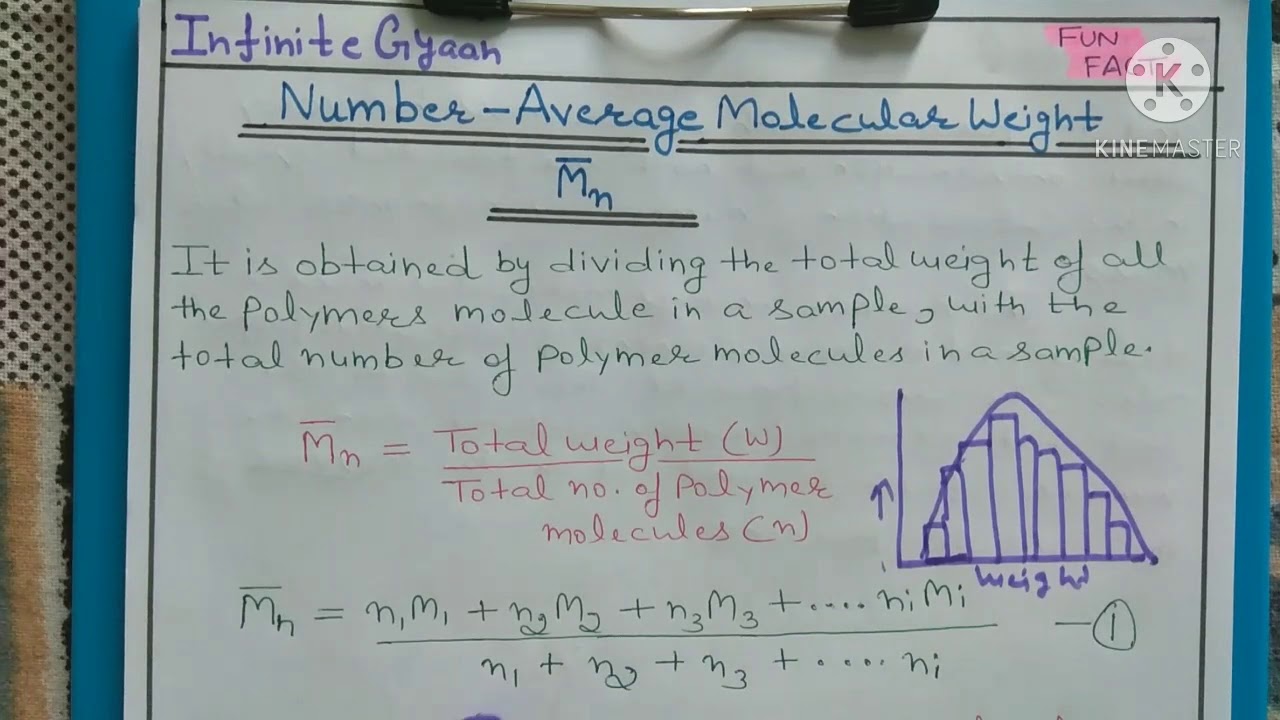 Infinite Gyaan
FUN
FACT
KINEMASTER
Number-Average Molecular Weight
M̅n
It is obtained by dividing the total weight of all
the polymers molecule in a sample, with the
total number of polymer molecules in a sample.
M̅n = Total weight (W)
Total no. of polymer
molecules (n)
weight
M̅n = n₁M₁ + n₂M₂ + n₃M₃ + .... nᵢMᵢ — ①
n₁ + n₂ + n₃ + ..... nᵢ